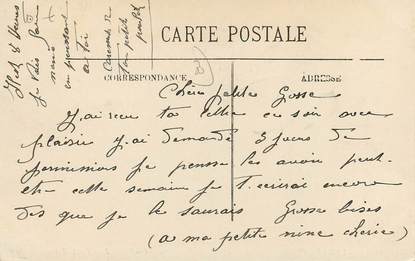 CARTE POSTALE
CORRESPONDANCE
ADRESSE
Chère petite Gosse
J'ai reçu ta lettre ce soir avec
plaisir j'ai demandé 3 jours de
permissions je pensse les avoir peut
etre cette semaine je t'ecrirai encore
des que je le saurais Grosse bises
(a ma petite nine cherie)
Il est 8 heures
je vais
en pensant
a toi
ton petit